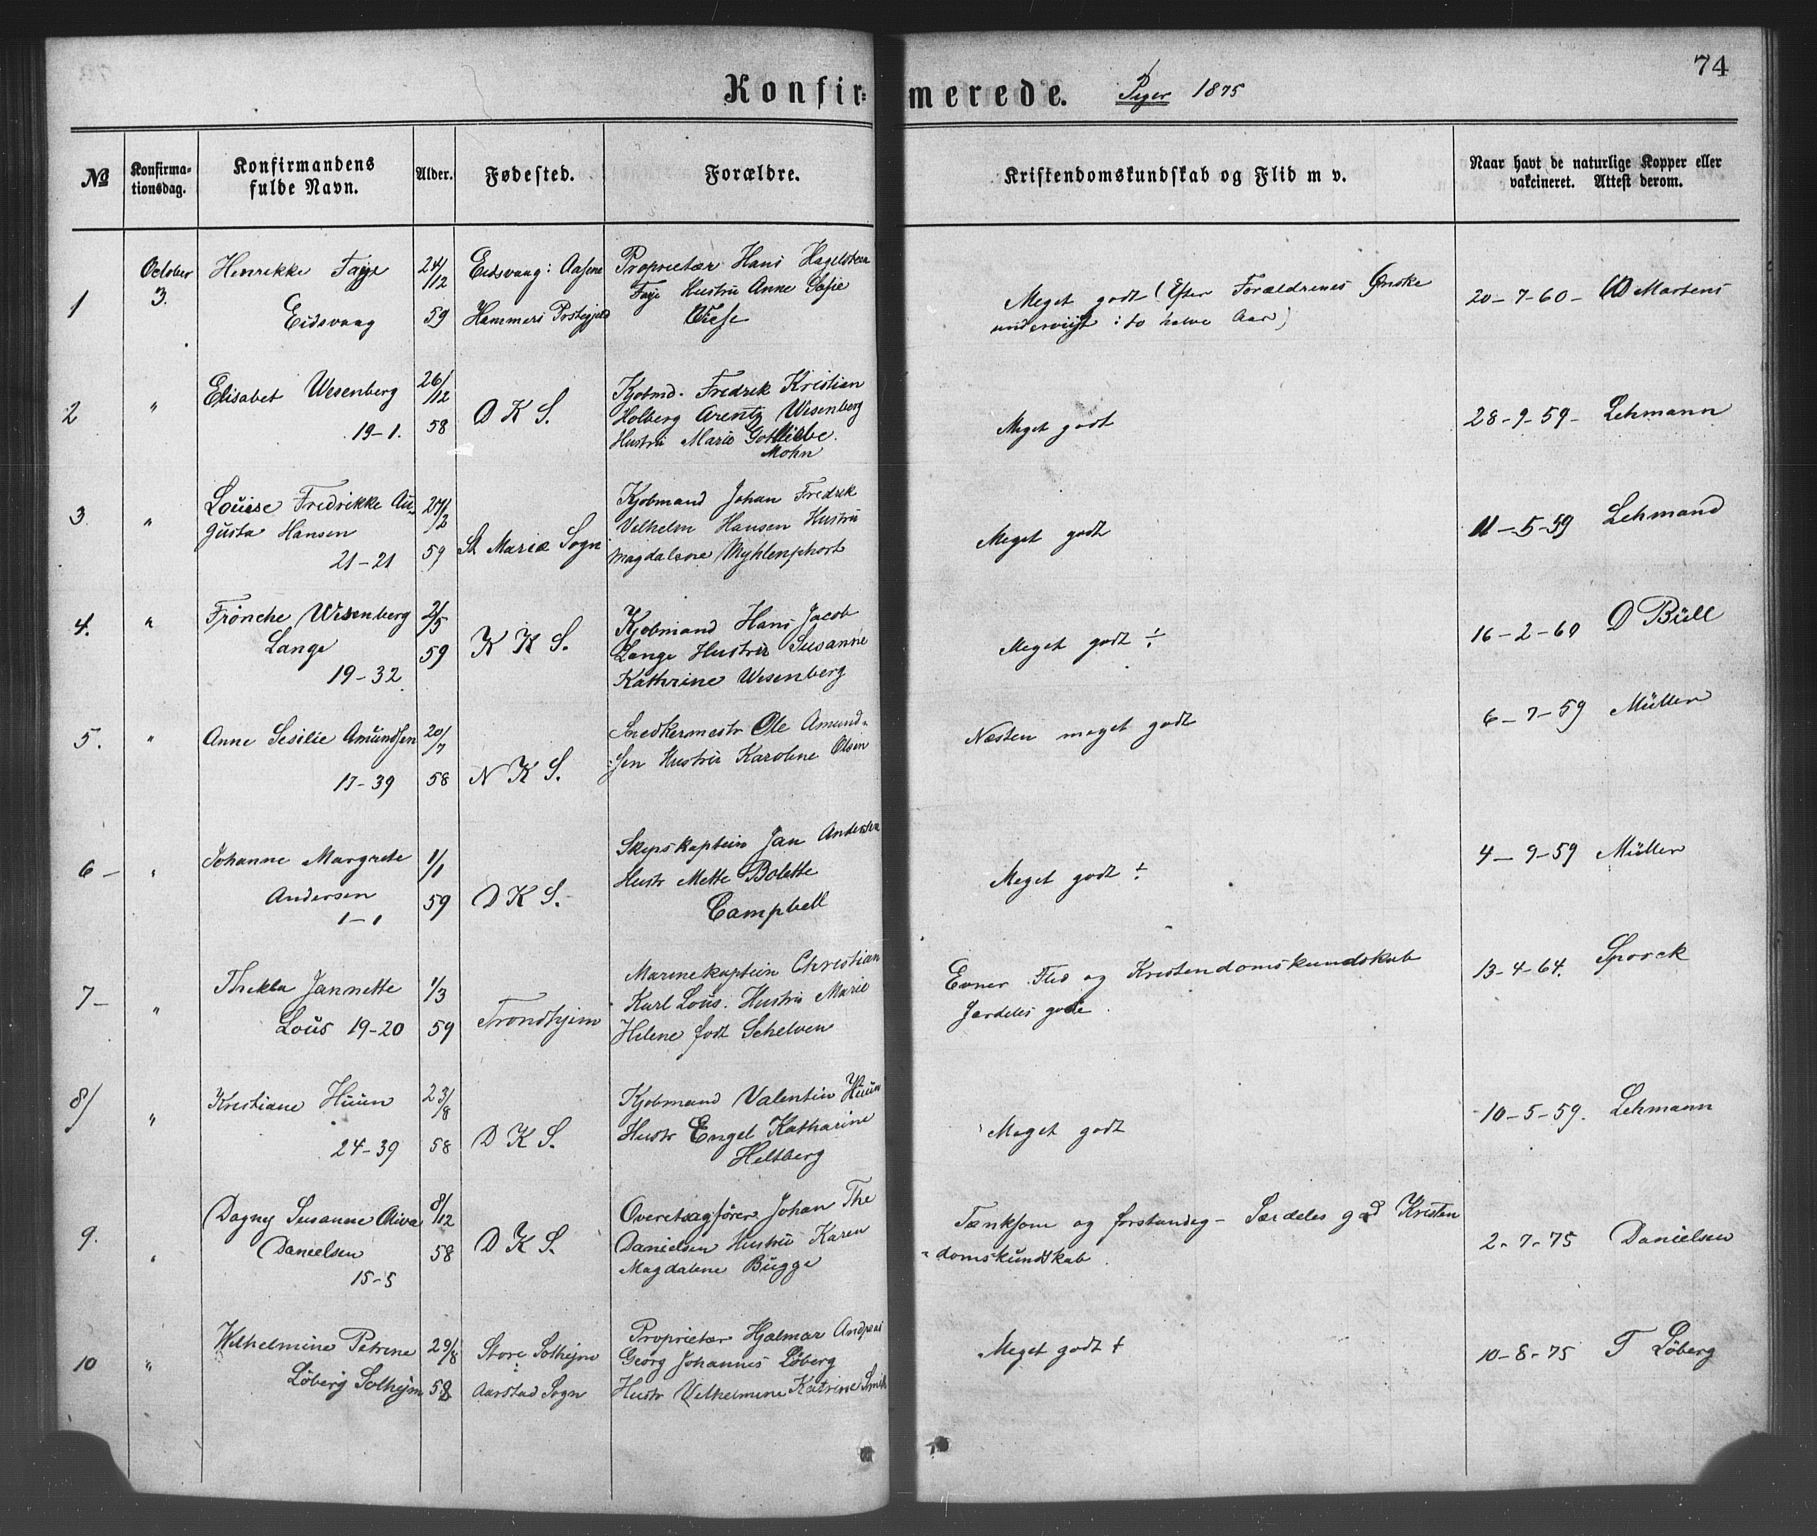 74
Konfirmerede. Piger 1875
No
Konfirma-
tionsdag.
Konfirmandens
fulde Navn.
Alder.
Fødested.
Forældre.
Kristendomskundskab og Flid m v.
Naar havt de naturlige Kopper eller
vakcineret. Attest derom.
1
October
3.
Henrikke Faye
Eidsvaag
24/12
59
Eidsvaag i Aasene
Hammers Prstegjeld
Proprietær Hans Hagelsteen
Faye Hustru Anne Sofie
Wiese
Meget godt (Efter Forældrenes Ønske
underviist i to halve Aar)
20-7-60- Martens
2
"
Elisabet Wesenberg
19-1.
26/12
58
D K S.
Kjøbmd. Fredrik Kristian
Holberg Arentz Wesenberg
Hustru Marie Gottliebe
Mohn
Meget godt
28-9-59- Lehmann
3
"
Louise Fredrikke Au-
gusta Hansen
21-21
27/2
59
St Mariæ Sogn
Kjøbmand Johan Fredrik
Vilhelm Hansen Hustru
Magdalene Myhlenphort
Meget godt
11-5-59 Lehmand
4.
"
Frønche Wesenberg
Lange
19-32
2/5
59
K K S.
Kjøbmand Hans Jacob
Lange Hustru Susanne
Kathrine Wesenberg
Meget godt ÷
16-2-60 D Büll
5.
"
Anne Sesilie Amundsen
17-39
20/7
58
N K S.
Snedkermestr Ole Amund-
sen Hustru Karoline Olsen
Næsten meget godt
6-7-59 Müller
6-
"
Johanne Margrete
Andersen
1-1
1/1
59
D K S.
Skipskaptein Jan Andersen
Hustr Mette Bolette
Campbell
Meget godt ÷
4-9-59 Müller
7-
"
Thekla Jannette
Loüs 19-20
1/3
59
Trondhjem
Marinekaptein Christian
Karl Loüs. Hustru Marie
Helene født Schelven
Evner Flid og Kristendomskundskab
særdeles gode.
13-4-64. Sporck
8)
"
Kristiane Huun
24-39
23/8
58
D K S.
Kjøbmand Valentin Huun
Hustr Engel Katharine
Heltberg
Meget godt
10-5-59. Lehmann
9.
"
Dagny Susanne Oliva
Danielsen
15-5
8/12
58
D K S.
Overetsagfører Johan The
Danielsen Hustru Karen
Magdalene Bugge
Tænksom og forstandig - Særdeles god Kristen
-domskundskab.
2-7-75 Danielsen
10
"
Wilhelmine Petrine
Løberg Solhejm
29/8
58
Store Solhejm
i
Aarstad Sogn
Proprietær Hjalmar Andreas
Georg Johannes Løberg
Hustr Vilhelmine Katrine Smith
Meget godt +
10-8-75 T Løberg